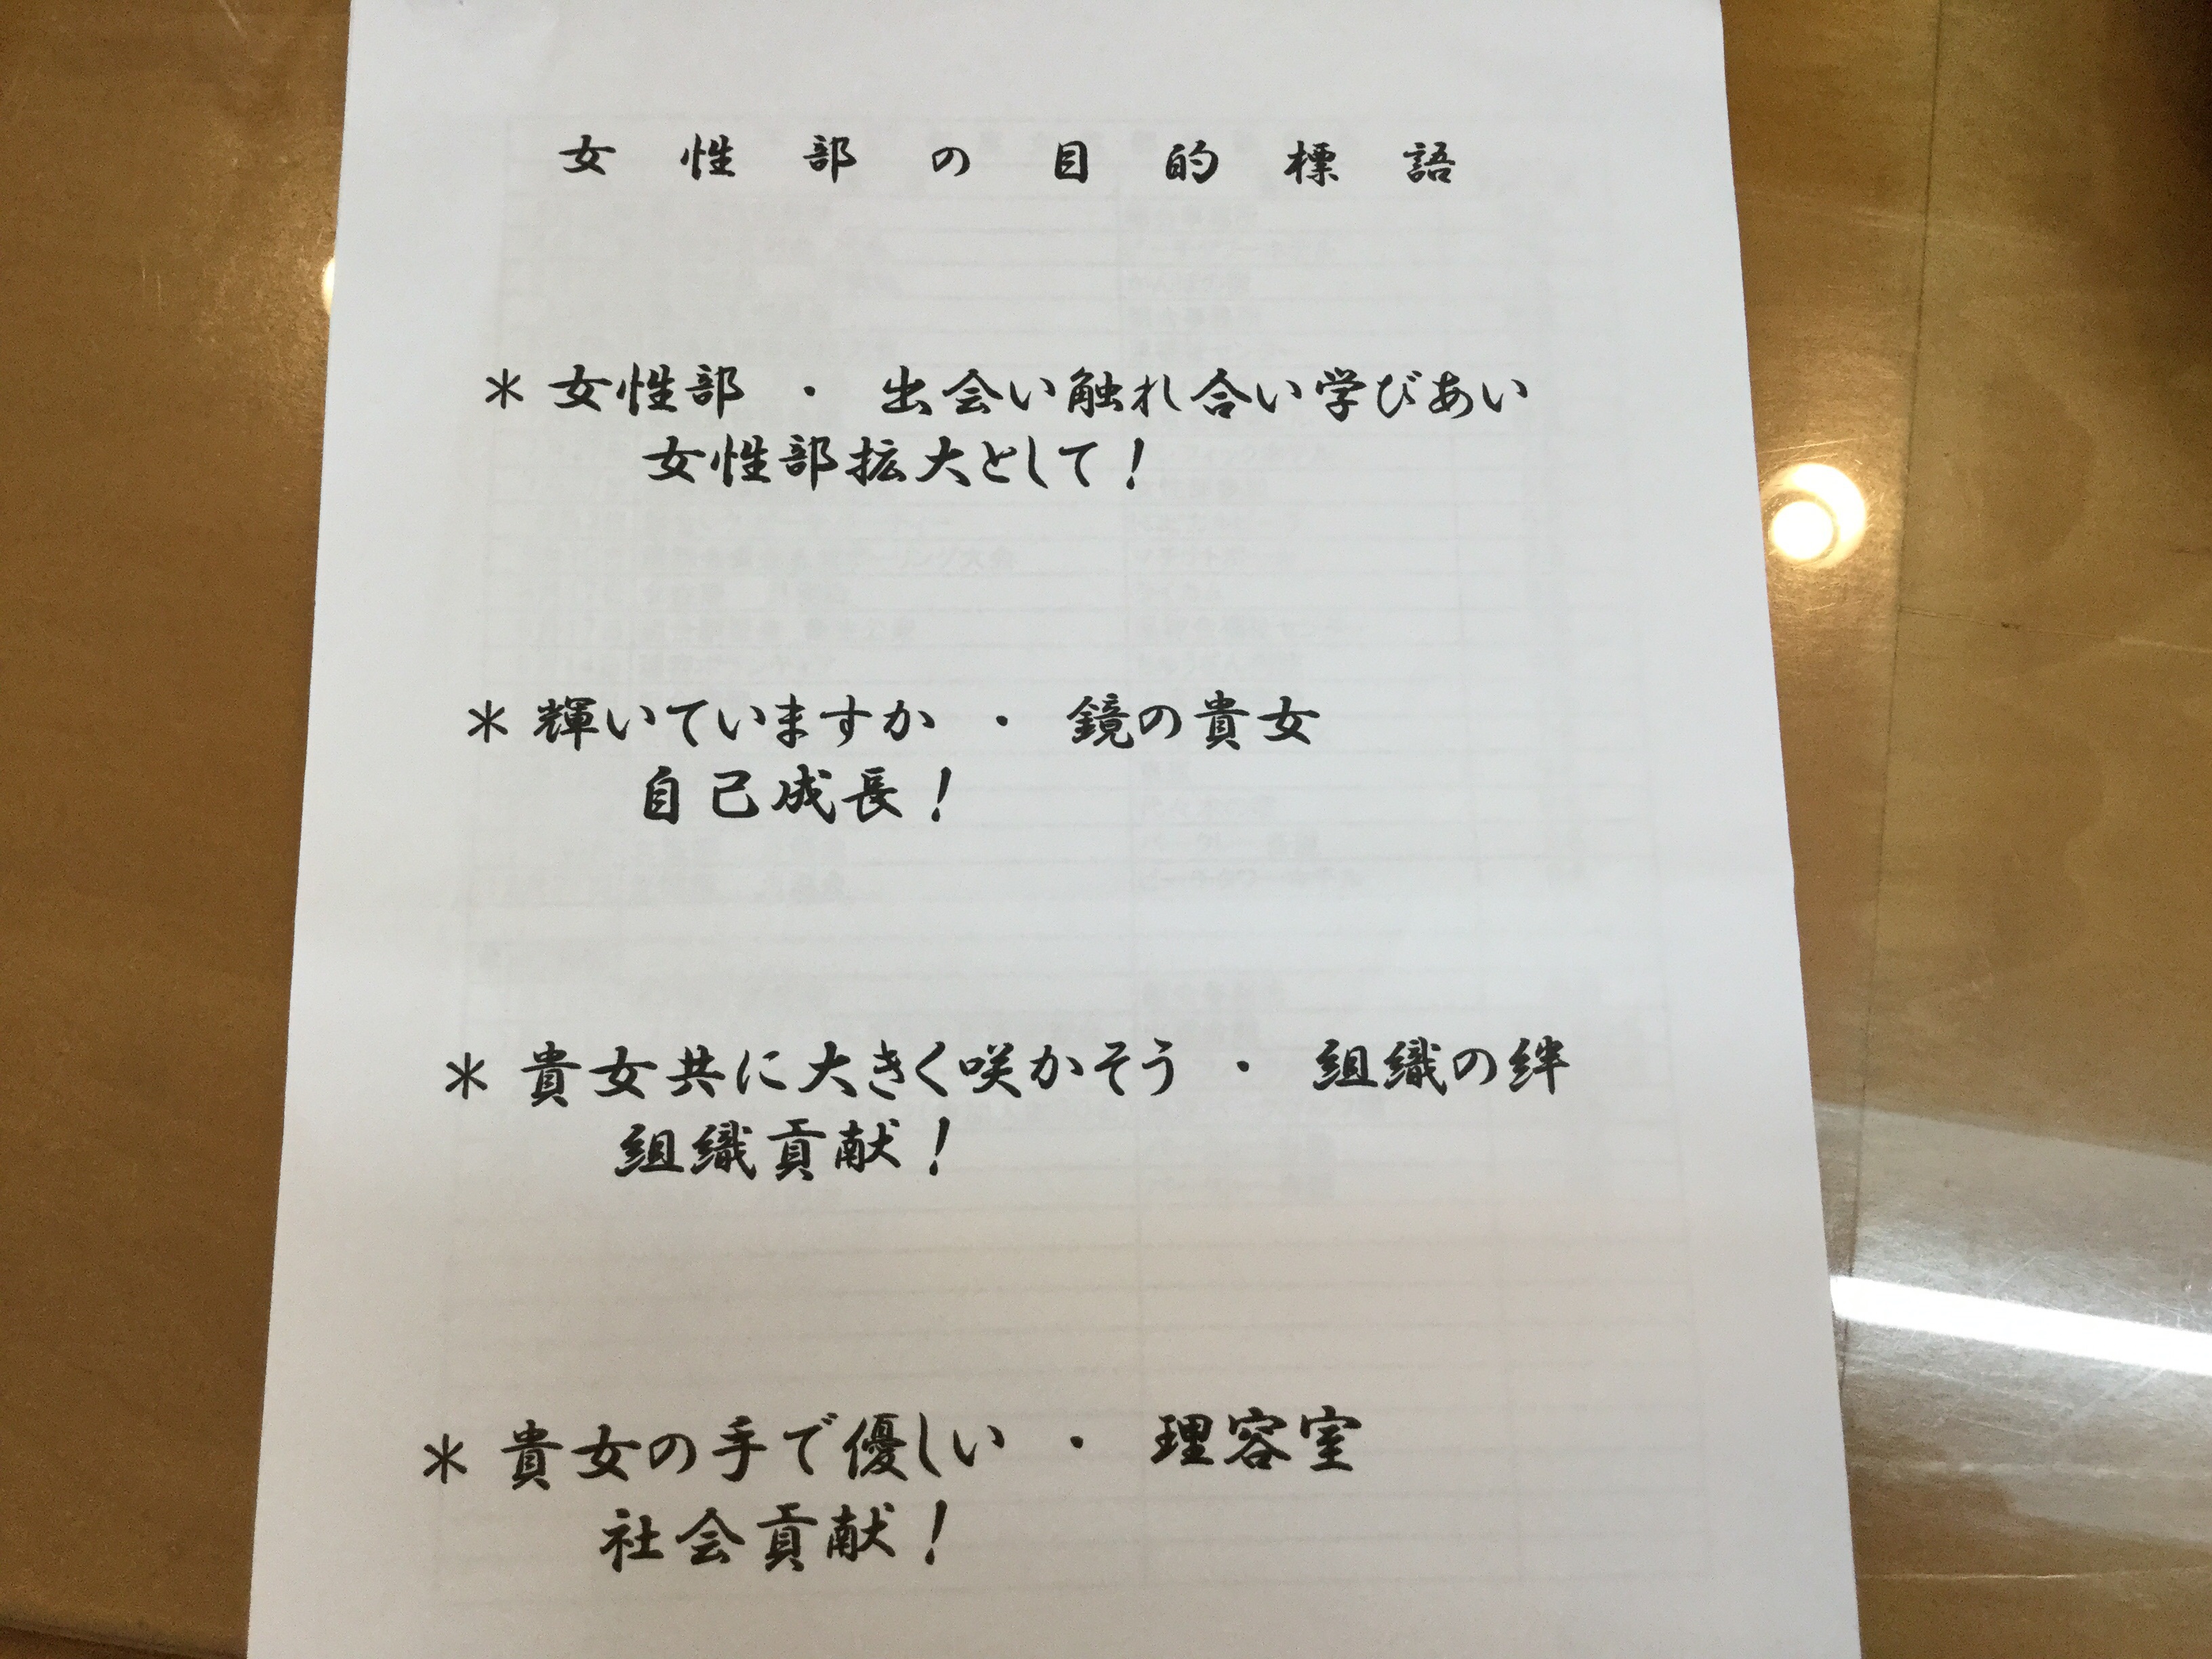 女性部の目的標語
＊女性部 ・ 出会い触れ合い学びあい
女性部拡大として！
＊輝いていますか ・ 鏡の貴女
自己成長！
＊貴女共に大きく咲かそう ・ 組織の絆
組織貢献！
＊貴女の手で優しい ・ 理容室
社会貢献！